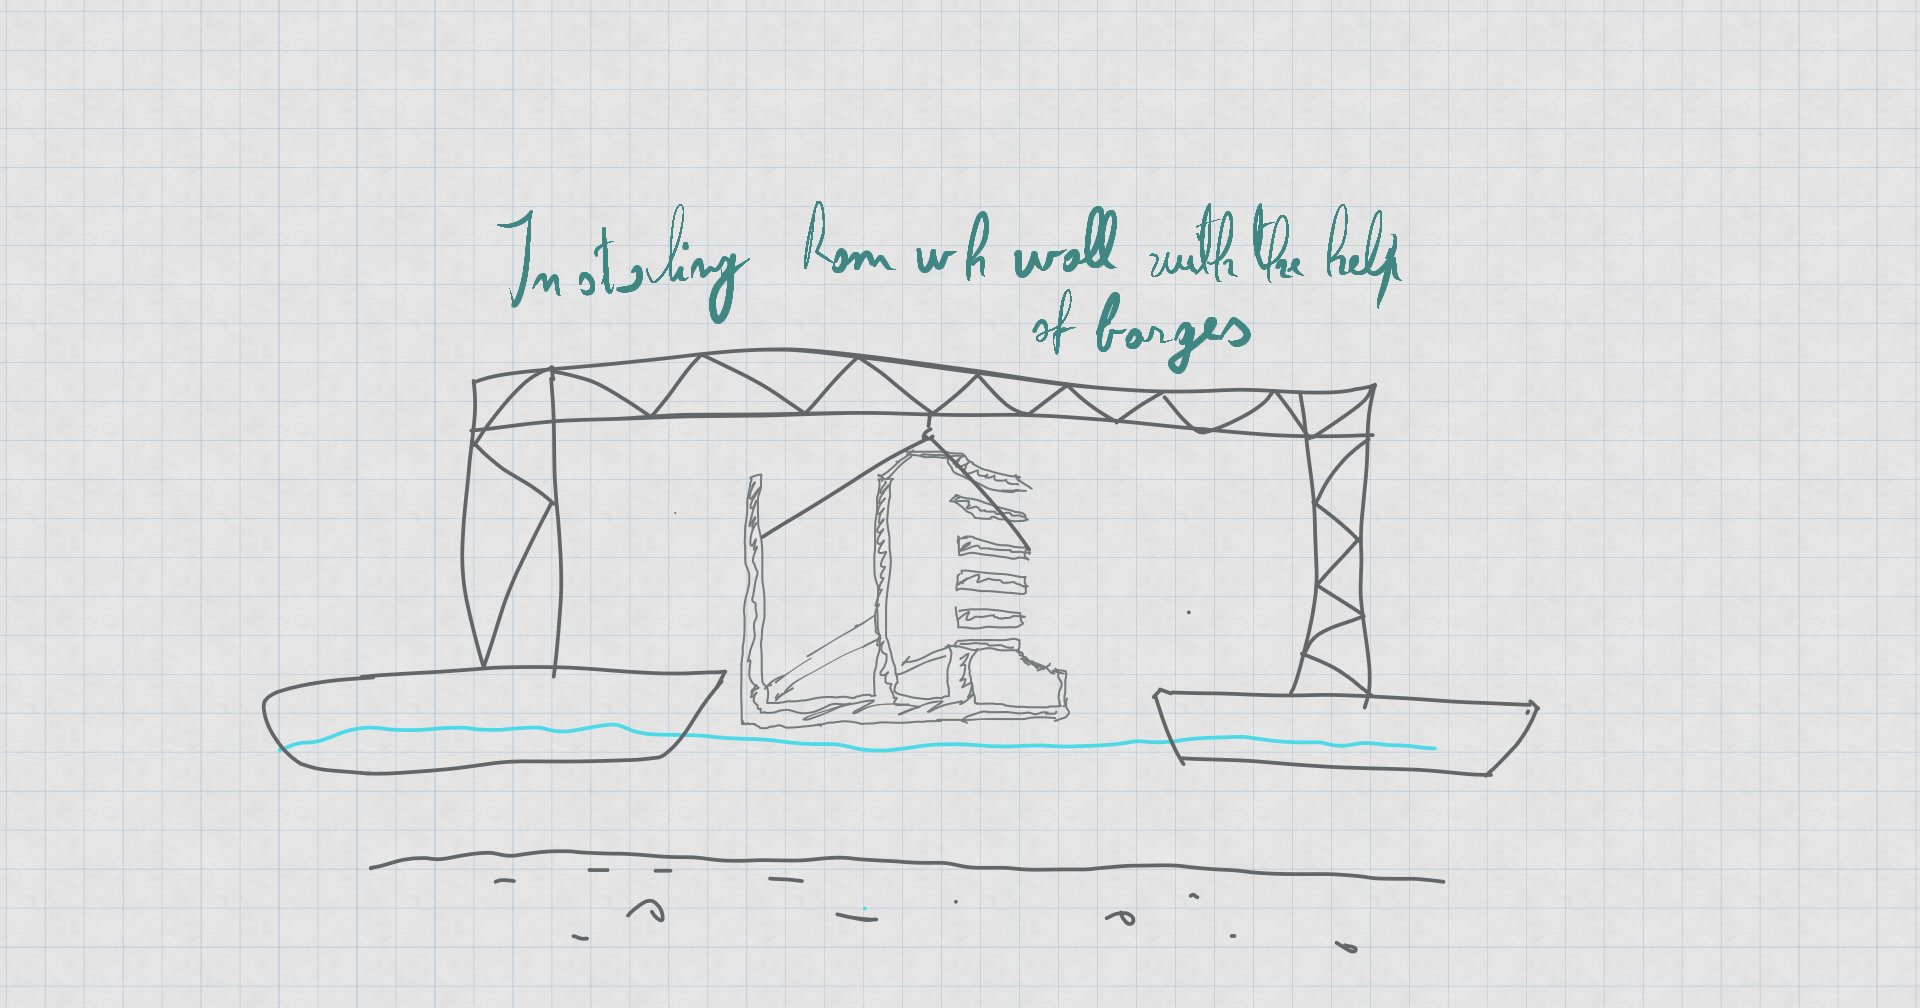 Instaling Ram wh wall with the help
of barges